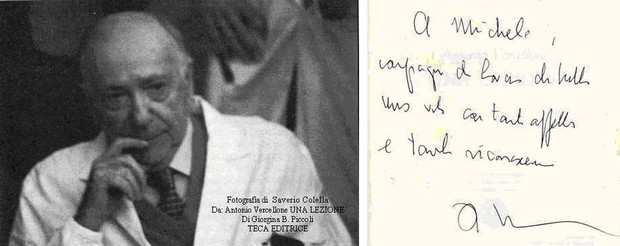 Fotografia di Saverio Colella
Da: Antonio Vercellone UNA LEZIONE
Di Giorgina B. Piccoli
TECA EDITRICE
A Michele,
compagno di lavoro di tutta
una vita con tanto affetto
e tanta riconoscenza